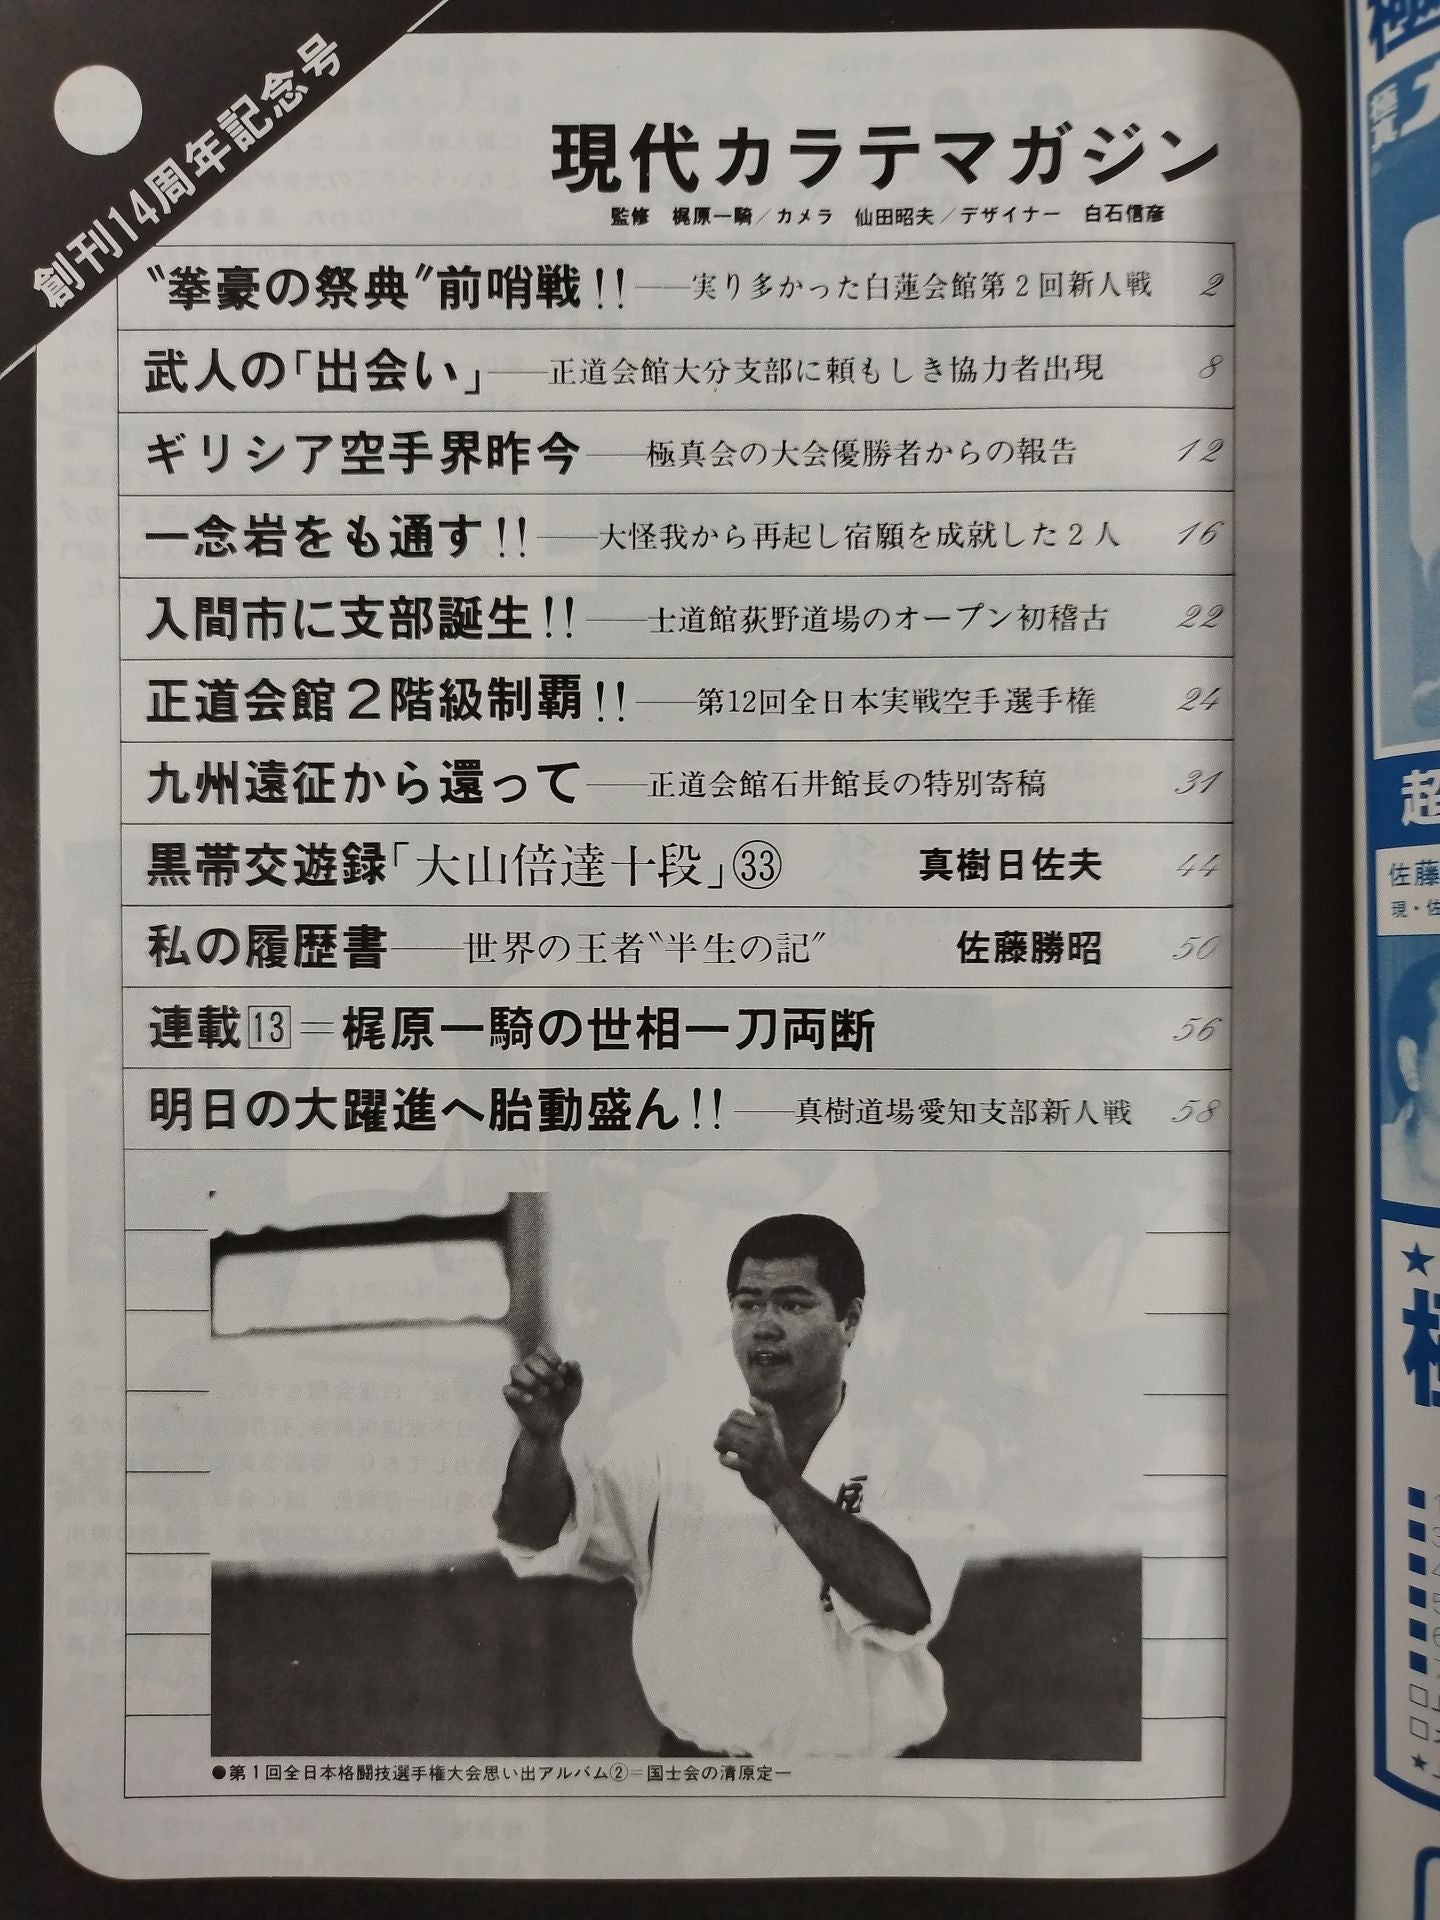 創刊14周年記念号
現代カラテマガジン
監修 梶原一騎／カメラ 仙田昭夫／デザイナー 白石信彦
〝拳豪の祭典〞前哨戦!!——実り多かった白蓮会館第2回新人戦 2
武人の「出会い」——正道会館大分支部に頼もしき協力者出現 8
ギリシア空手界昨今——極真会の大会優勝者からの報告 12
一念岩をも通す!!——大怪我から再起し宿願を成就した2人 16
入間市に支部誕生!!——士道館荻野道場のオープン初稽古 22
正道会館2階級制覇!!——第12回全日本実戦空手選手権 24
九州遠征から還って——正道会館石井館長の特別寄稿 31
黒帯交遊録「大山倍達十段」㉝ 真樹日佐夫 44
私の履歴書——世界の王者〝半生の記〞 佐藤勝昭 50
連載13＝梶原一騎の世相一刀両断 56
明日の大躍進へ胎動盛ん!!——真樹道場愛知支部新人戦 58
●第1回全日本格闘技選手権大会思い出アルバム②＝国士会の清原定一
超
佐藤
現・佐
★